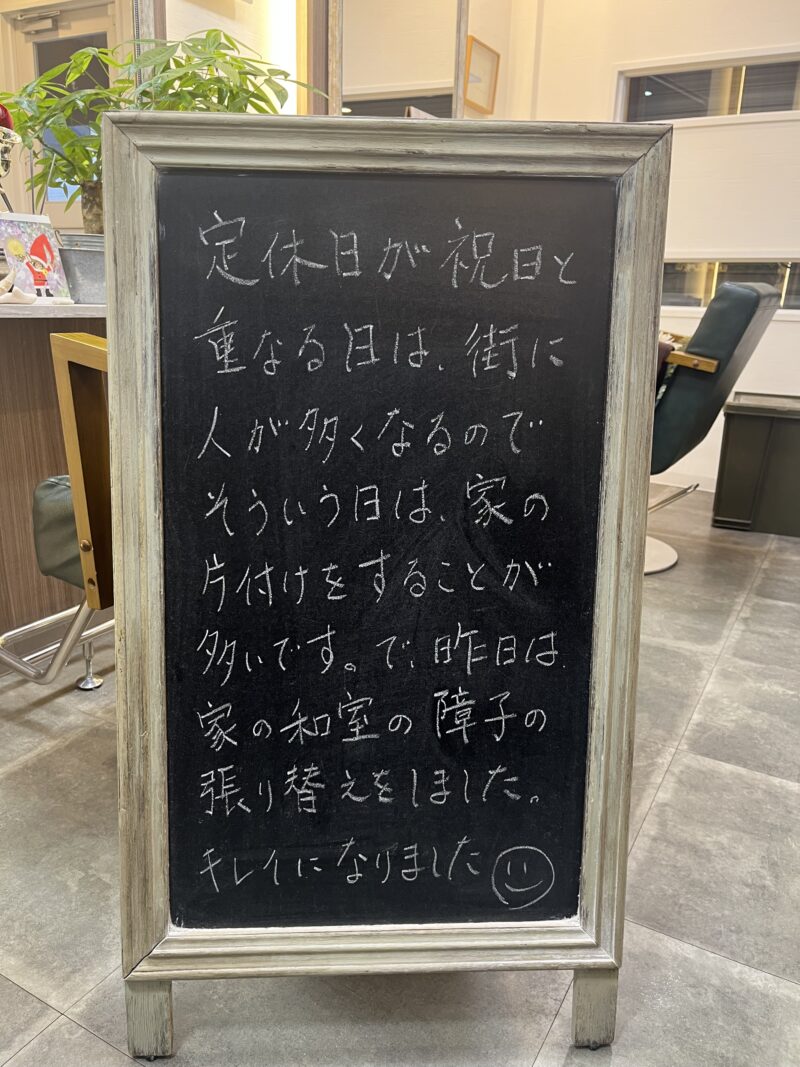 定休日が祝日と
重なる日は、街に
人が多くなるので
そういう日は、家の
片付けをすることが
多いです。で、昨日は、
家の和室の障子の
張り替えをしました。
キレイになりました